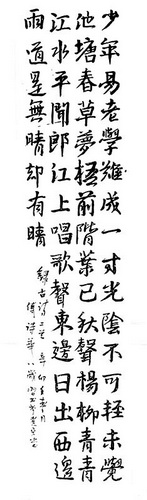 少年易老學難成一寸光陰不可輕未覺
池塘春草夢梧前階葉已秋聲楊柳青青
江水平聞郎江上唱歌聲東邊日出西邊
雨道是無晴却有晴